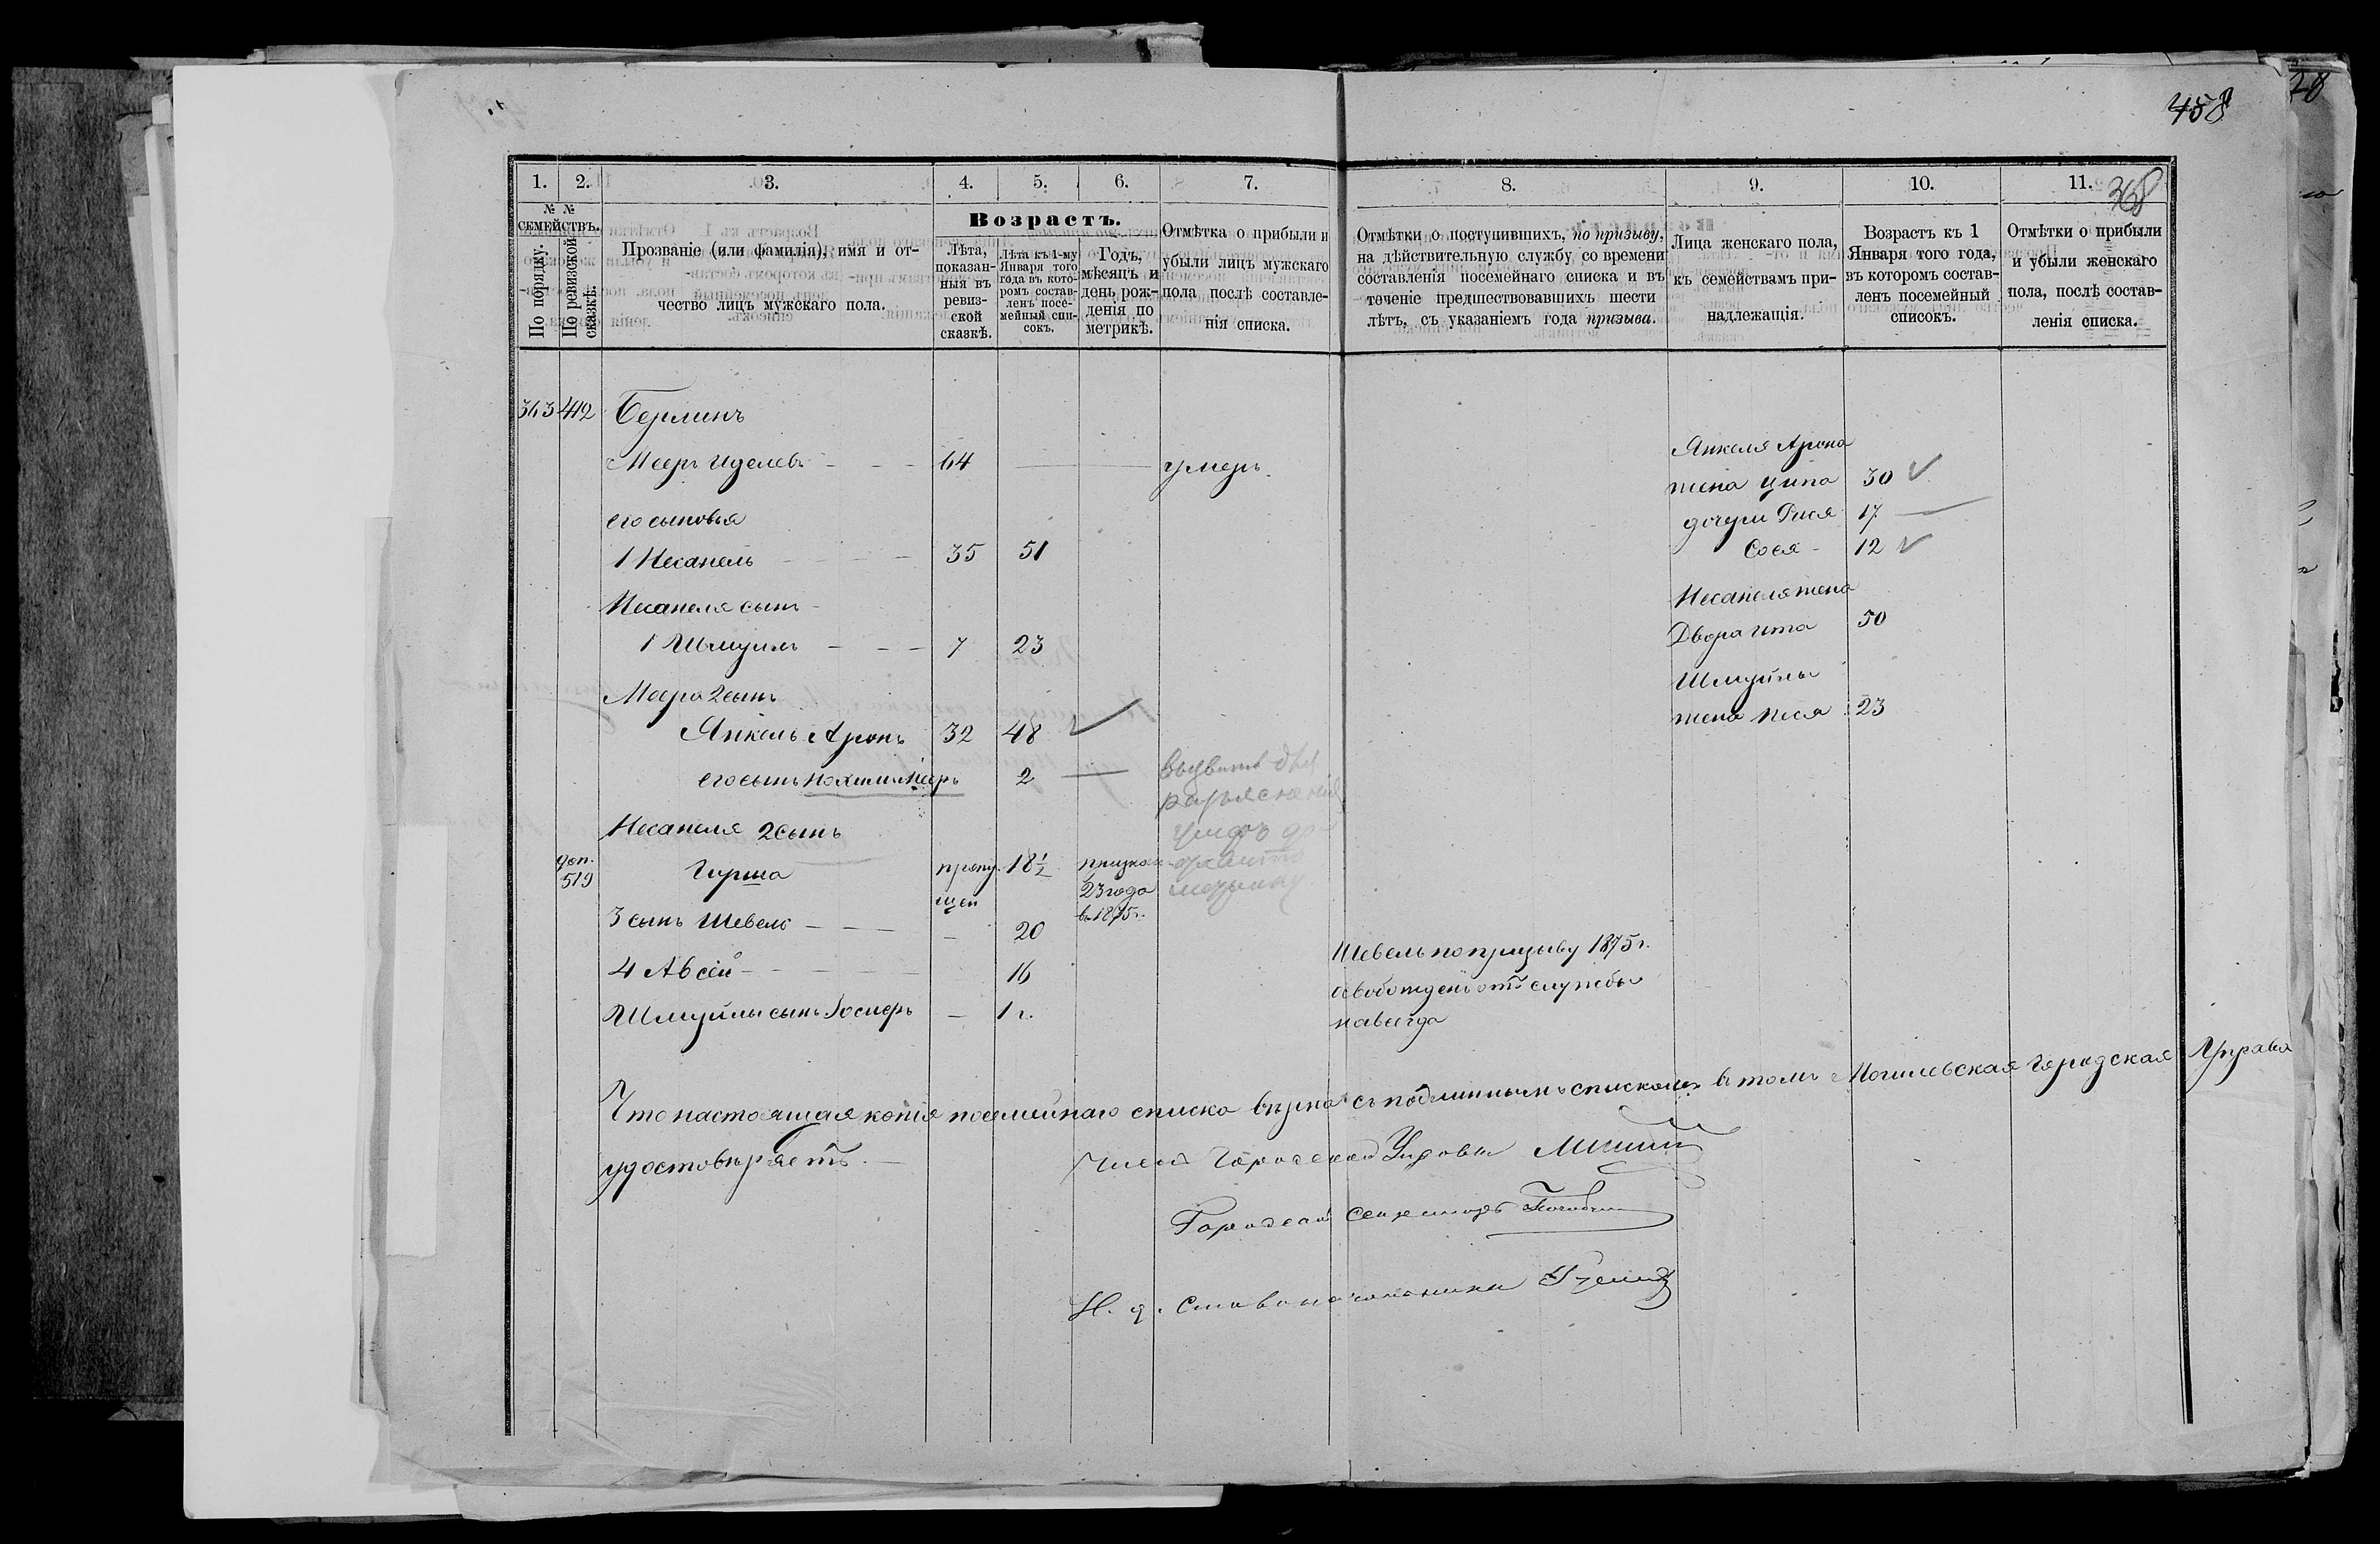 458
28
368
1. 2. 3. 4. 5. 6. 7. 8. 9. 10. 11.
№ №
семействъ.
По порядку.
По ревизской сказкѣ.
Прозваніе (или фамилія), имя и от-
чество лицъ мужскаго пола.
Возрастъ.
Лѣта,
показан-
ныя въ
ревиз-
ской
сказкѣ.
Лѣта къ 1-му
Января того
года въ кото-
ромъ состав-
ленъ посе-
мейный спи-
сокъ.
Годъ,
мѣсяцъ и
день рож-
денія по
метрикѣ.
Отмѣтка о прибыли и
убыли лицъ мужскаго
пола послѣ составле-
нія списка.
Отмѣтки о поступившихъ, по призыву,
на дѣйствительную службу со времени
составленія посемейнаго списка и въ
теченіе предшествовавшихъ шести
лѣтъ, съ указаніемъ года призыва.
Лица женскаго пола,
къ семействамъ при-
надлежащія.
Возрастъ къ 1
Января того года,
въ которомъ состав-
ленъ посемейный
списокъ.
Отмѣтки о прибыли
и убыли женскаго
пола, послѣ состав-
ленія списка.
363 412 Берлинъ
Мееръ Иделевъ - - - 64 умеръ.
его сыновья
1 Несанель - - - 35 51
Несанеля сынъ
1 Шмуилъ - - - 7 23
Меера 2 сынъ
Янкель Аронъ 32 48 ✓
его сынъ Нохимъ Мееръ 2 — вызвать для
разъясненія
Несанеля 2 сынъ
доп.
519
Гирша пропу-
щен 18½ признан
23 года
въ 1875 г.
3 сынъ Шевель - - - 20
4 Авсѣй - - - 16
Шмуйлы сынъ Іосиеръ — 1 г.
Шевель по призыву 1875 г.
освобожденъ отъ службы
навсегда
Янкеля Арона
жена Ципа 30 ✓
дочери Рися 17 —
Сося - 12 ✓
Несанеля жена
Двора Ита 50
Шмуйлы
жена Песя 23
Что настоящая копія посемейнаго списка вѣрна съ подлиннымъ спискомъ въ томъ Могилевская Городская Управа
удостовѣряетъ. —
Членъ Городской Управы
Городской Секретарь
И. д. Столоначальника